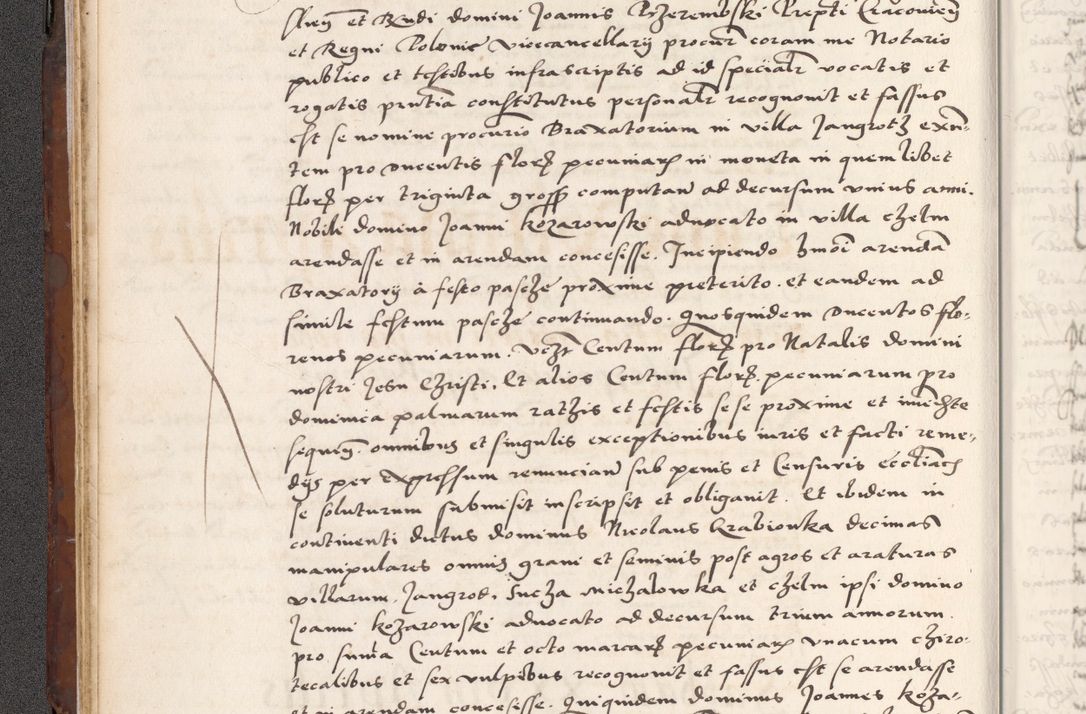 sliens et Rndi domini Joannis Przerembski Prepti Cracovien
et Regni Polonie vicecancellarij procur coram me Notario
publico et testibus infrascriptis ad id specialr vocatis et
rogatis prntia constitutus personalr recognovit et fassus
est se nomine procurio Braxatorium in villa Jangroth exn-
tem pro ducentis flor pecuniar in moneta in quemlibet
flor per triginta gross computan ad decursum unius anni.
Nobili domino Joanni Kozarowski advocato in villa chelm
arendasse et in arendam concesisse. Incipiendo hmoi arendam
Braxatorij à festo pasche proxime preterito. et eandem ad
simile festum pasche continuando. Quosquidem ducentos flo-
renos pecuniarum. vczt Centum flor pro Natalis domini
nostri Jesu Christi, Et alios Centum flor pecuniarum pro
dominica palmarum rathis et festis sese proxime et immedte
sequen. omnibus et singulis exceptionibus iuris et facti reme-
dijs per expressum renuncian sub penis et Censuris eccliacis
se soluturum submisit inscripsit et obligavit. Et ibidem in
continenti dictus dominus Nicolaus Grabionka decimas
manipulares omnis grani et seminis post agros et araturas
villarum Jangrot, Sucha Michalowka et chelm ipsi domino
Joanni Kozarowski advocato ad decursum trium annorum
pro suma Centum et octo marcar pecuniar unacum chiro-
tecalibus et sex vulpibus recognovit et fassus est se arendasse
et in arendam concesisse. Quiquidem dominus Joannes Koza-